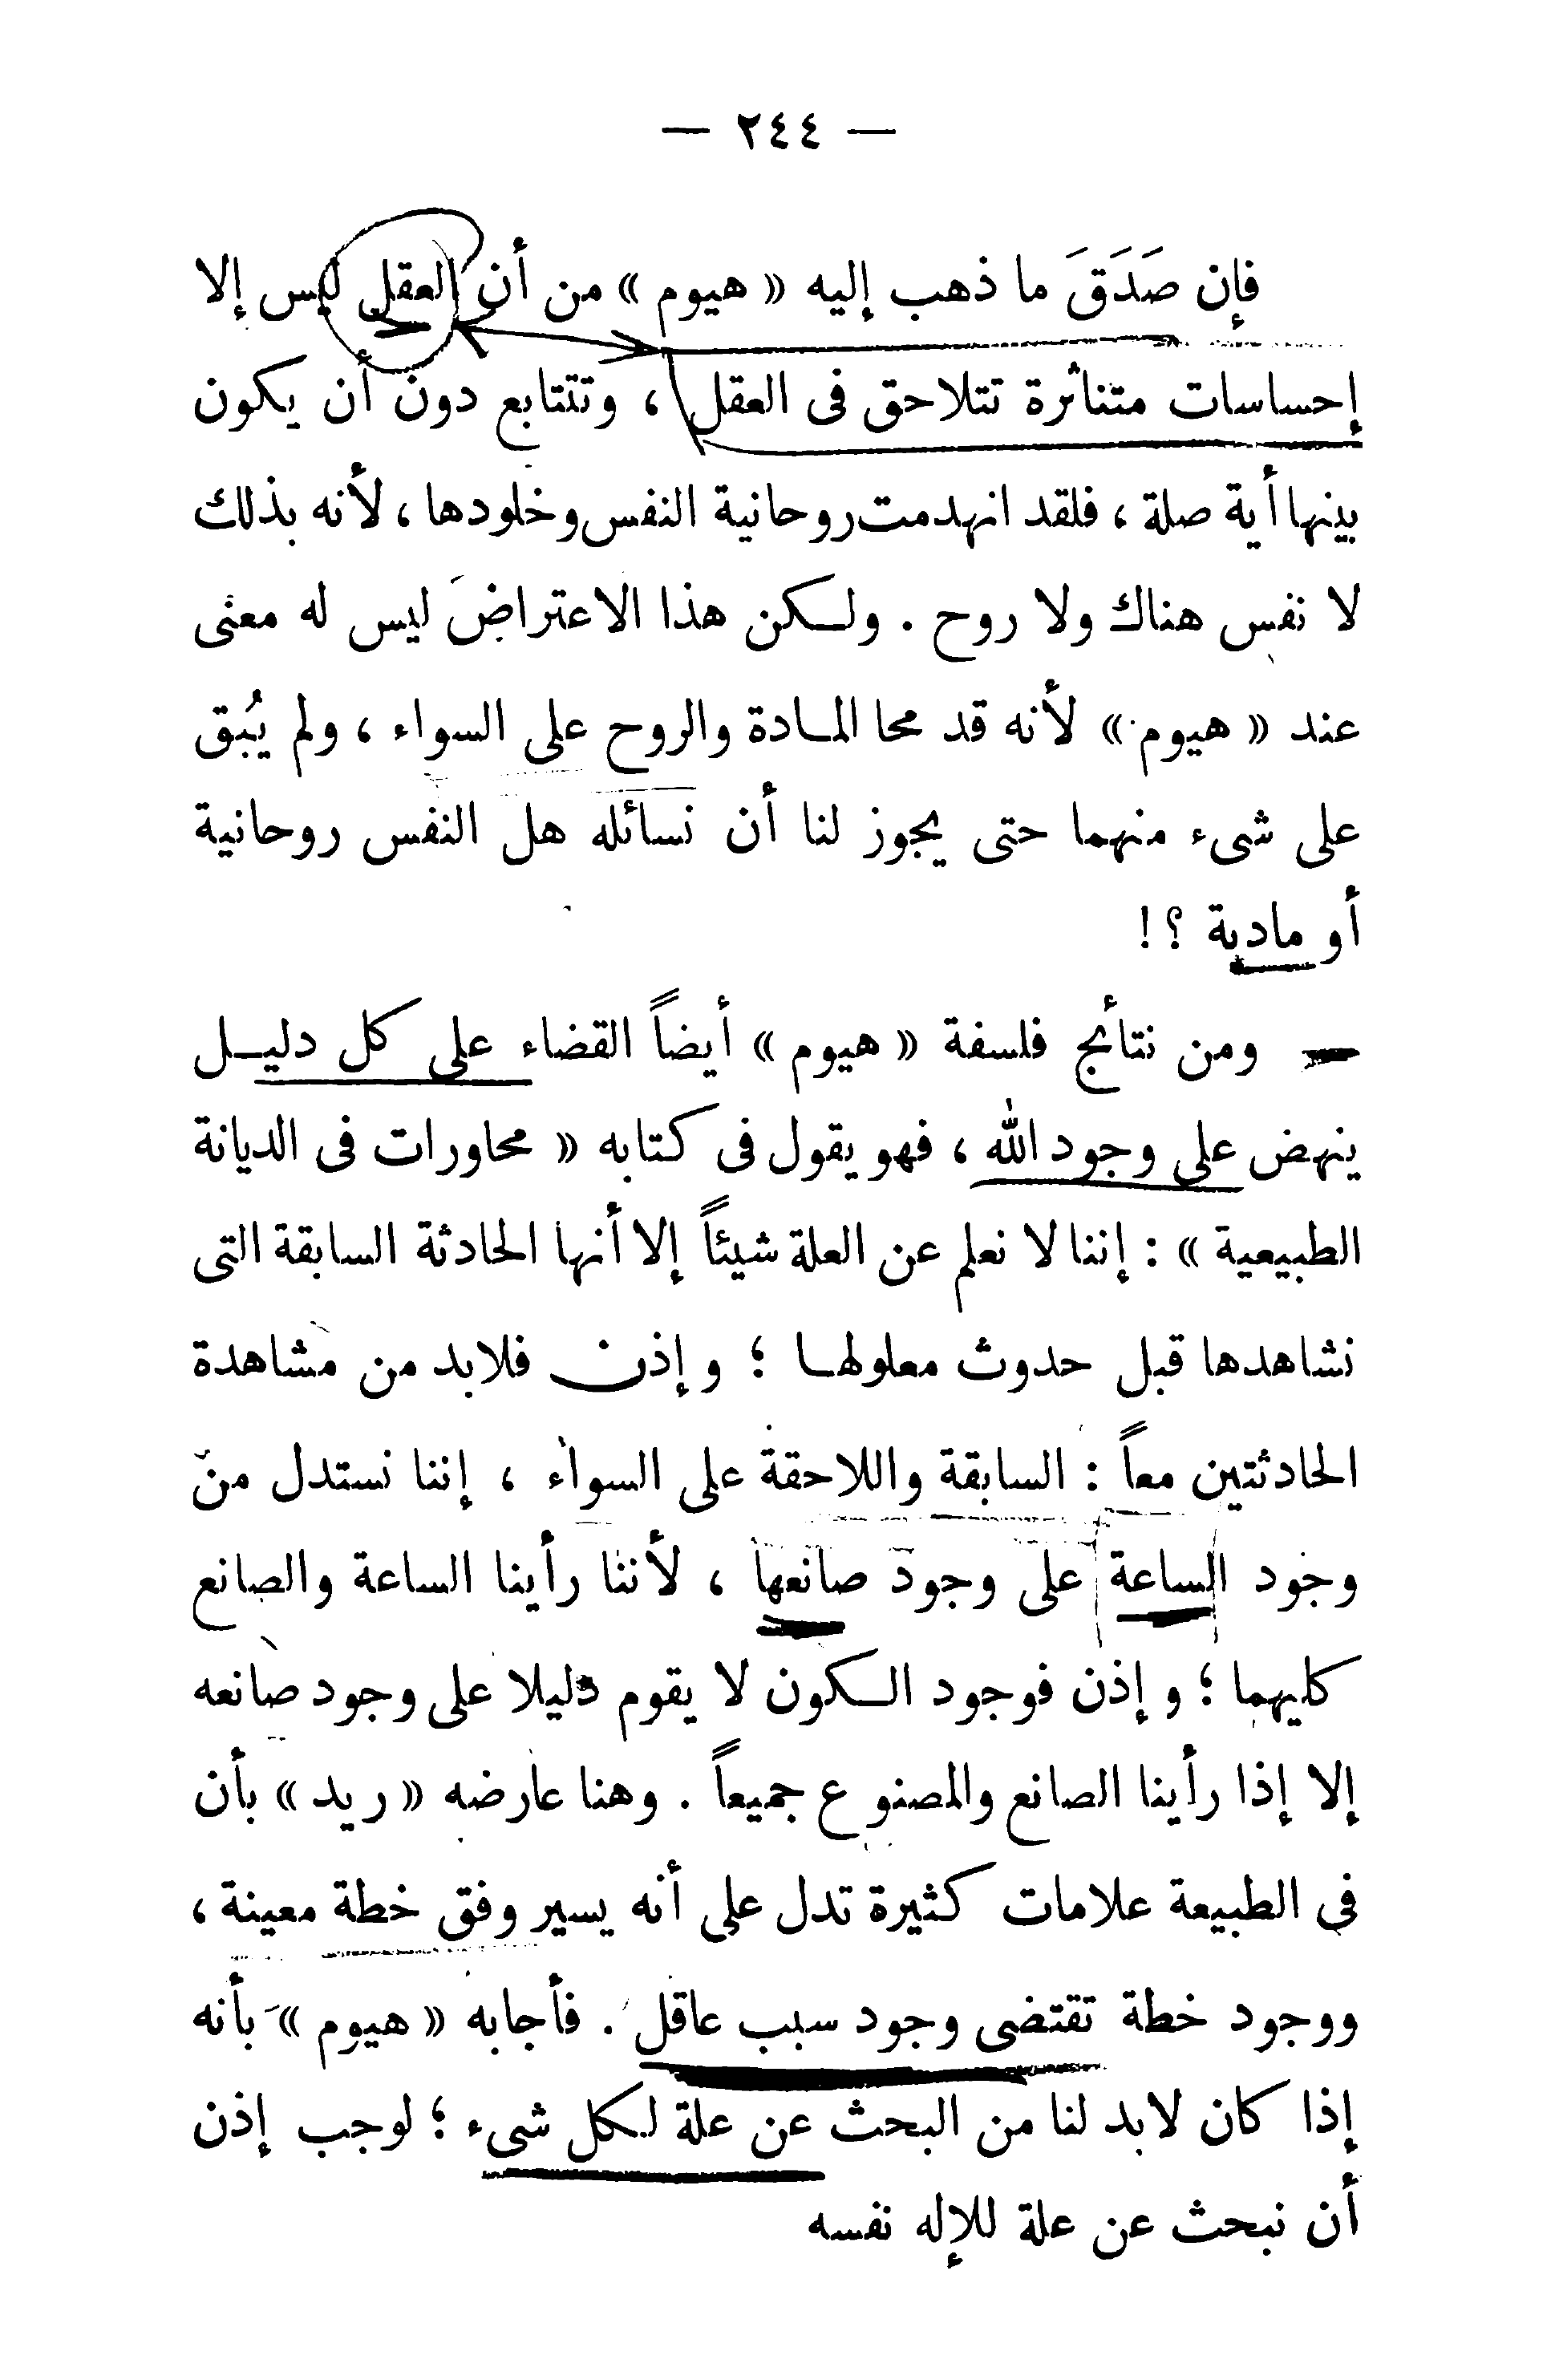 — ٢٤٤ —
فإن صَدَقَ ما ذهب إليه « هيوم » من أن العقل ليس إلا
إحساسات متناثرة تتلاحق فى العقل ، وتتتابع دون أن يكون
بينها أية صلة ، فلقد انهدمت روحانية النفس وخلودها ، لأنه بذلك
لا نفس هناك ولا روح . ولـكن هذا الاعتراض ليس له معنى
عند « هيوم » لأنه قد محا المـادة والروح على السواء ، ولم يُبق
على شىء منهما حتى يجوز لنا أن نسائله هل النفس روحانية
أو مادية ؟ !
ومن نتائج فلسفة « هيوم » أيضاً القضاء على كل دليـل
ينهض على وجود الله ، فهو يقول فى كتابه « محاورات فى الديانة
الطبيعية » : إننا لا نعلم عن العلة شيئاً إلا أنها الحادثة السابقة التى
نشاهدها قبل حدوث معلولهـا ؛ وإذن فلابد من مشاهدة
الحادثتين معاً : السابقة واللاحقة على السواء ، إننا نستدل من
وجود الساعة على وجود صانعها ، لأننا رأينا الساعة والصانع
كليهما ؛ وإذن فوجود الـكون لا يقوم دليلا على وجود صانعه
إلا إذا رأينا الصانع والمصنوع جميعاً . وهنا عارضه « ريد » بأن
فى الطبيعة علامات كثيرة تدل على أنه يسير وفق خطة معينة ،
ووجود خطة تقتضى وجود سبب عاقل . فأجابه « هيوم » بأنه
إذا كان لابد لنا من البحث عن علة لـكل شىء ؛ لوجب إذن
أن نبحث عن علة للإله نفسه